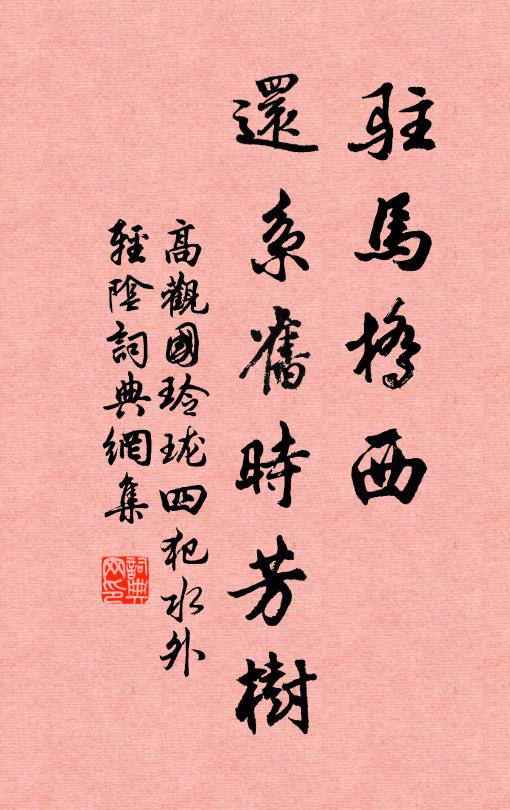 駐馬橋西
還系舊時芳樹
高觀國玲瓏四犯水外
輕陰詞典網集
詞典
网印